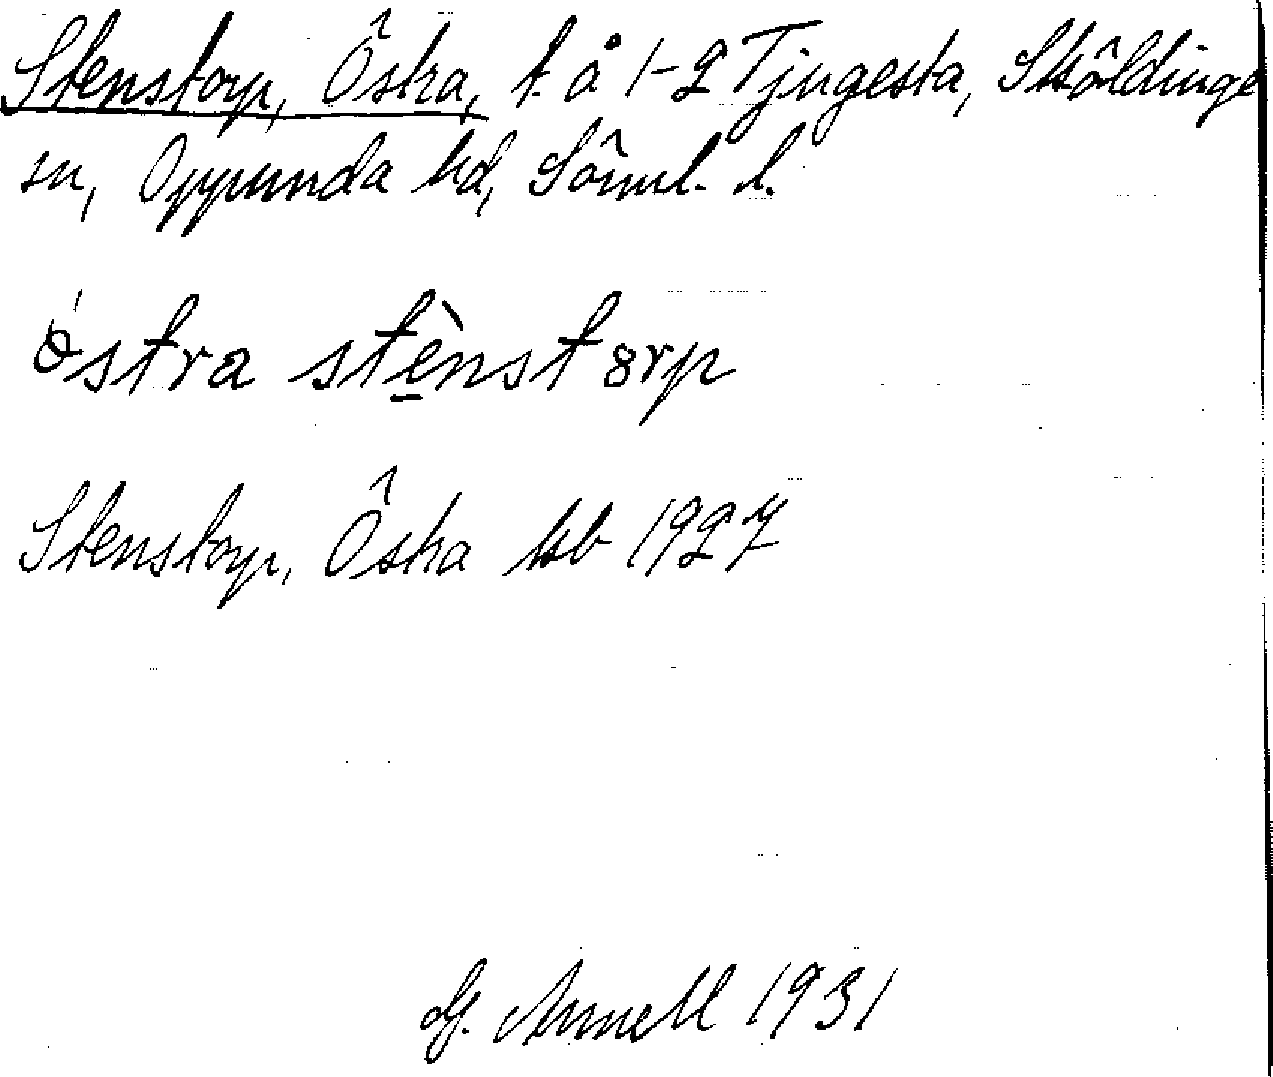 Stenstorp, Östra, t. å 1-2 Tjugesta, Sköldinge
sn, Oppunda hd, Sörml. l.
östra stè̱nstørp
Stenstorp, Östra kb 1927
G. Annell 1931